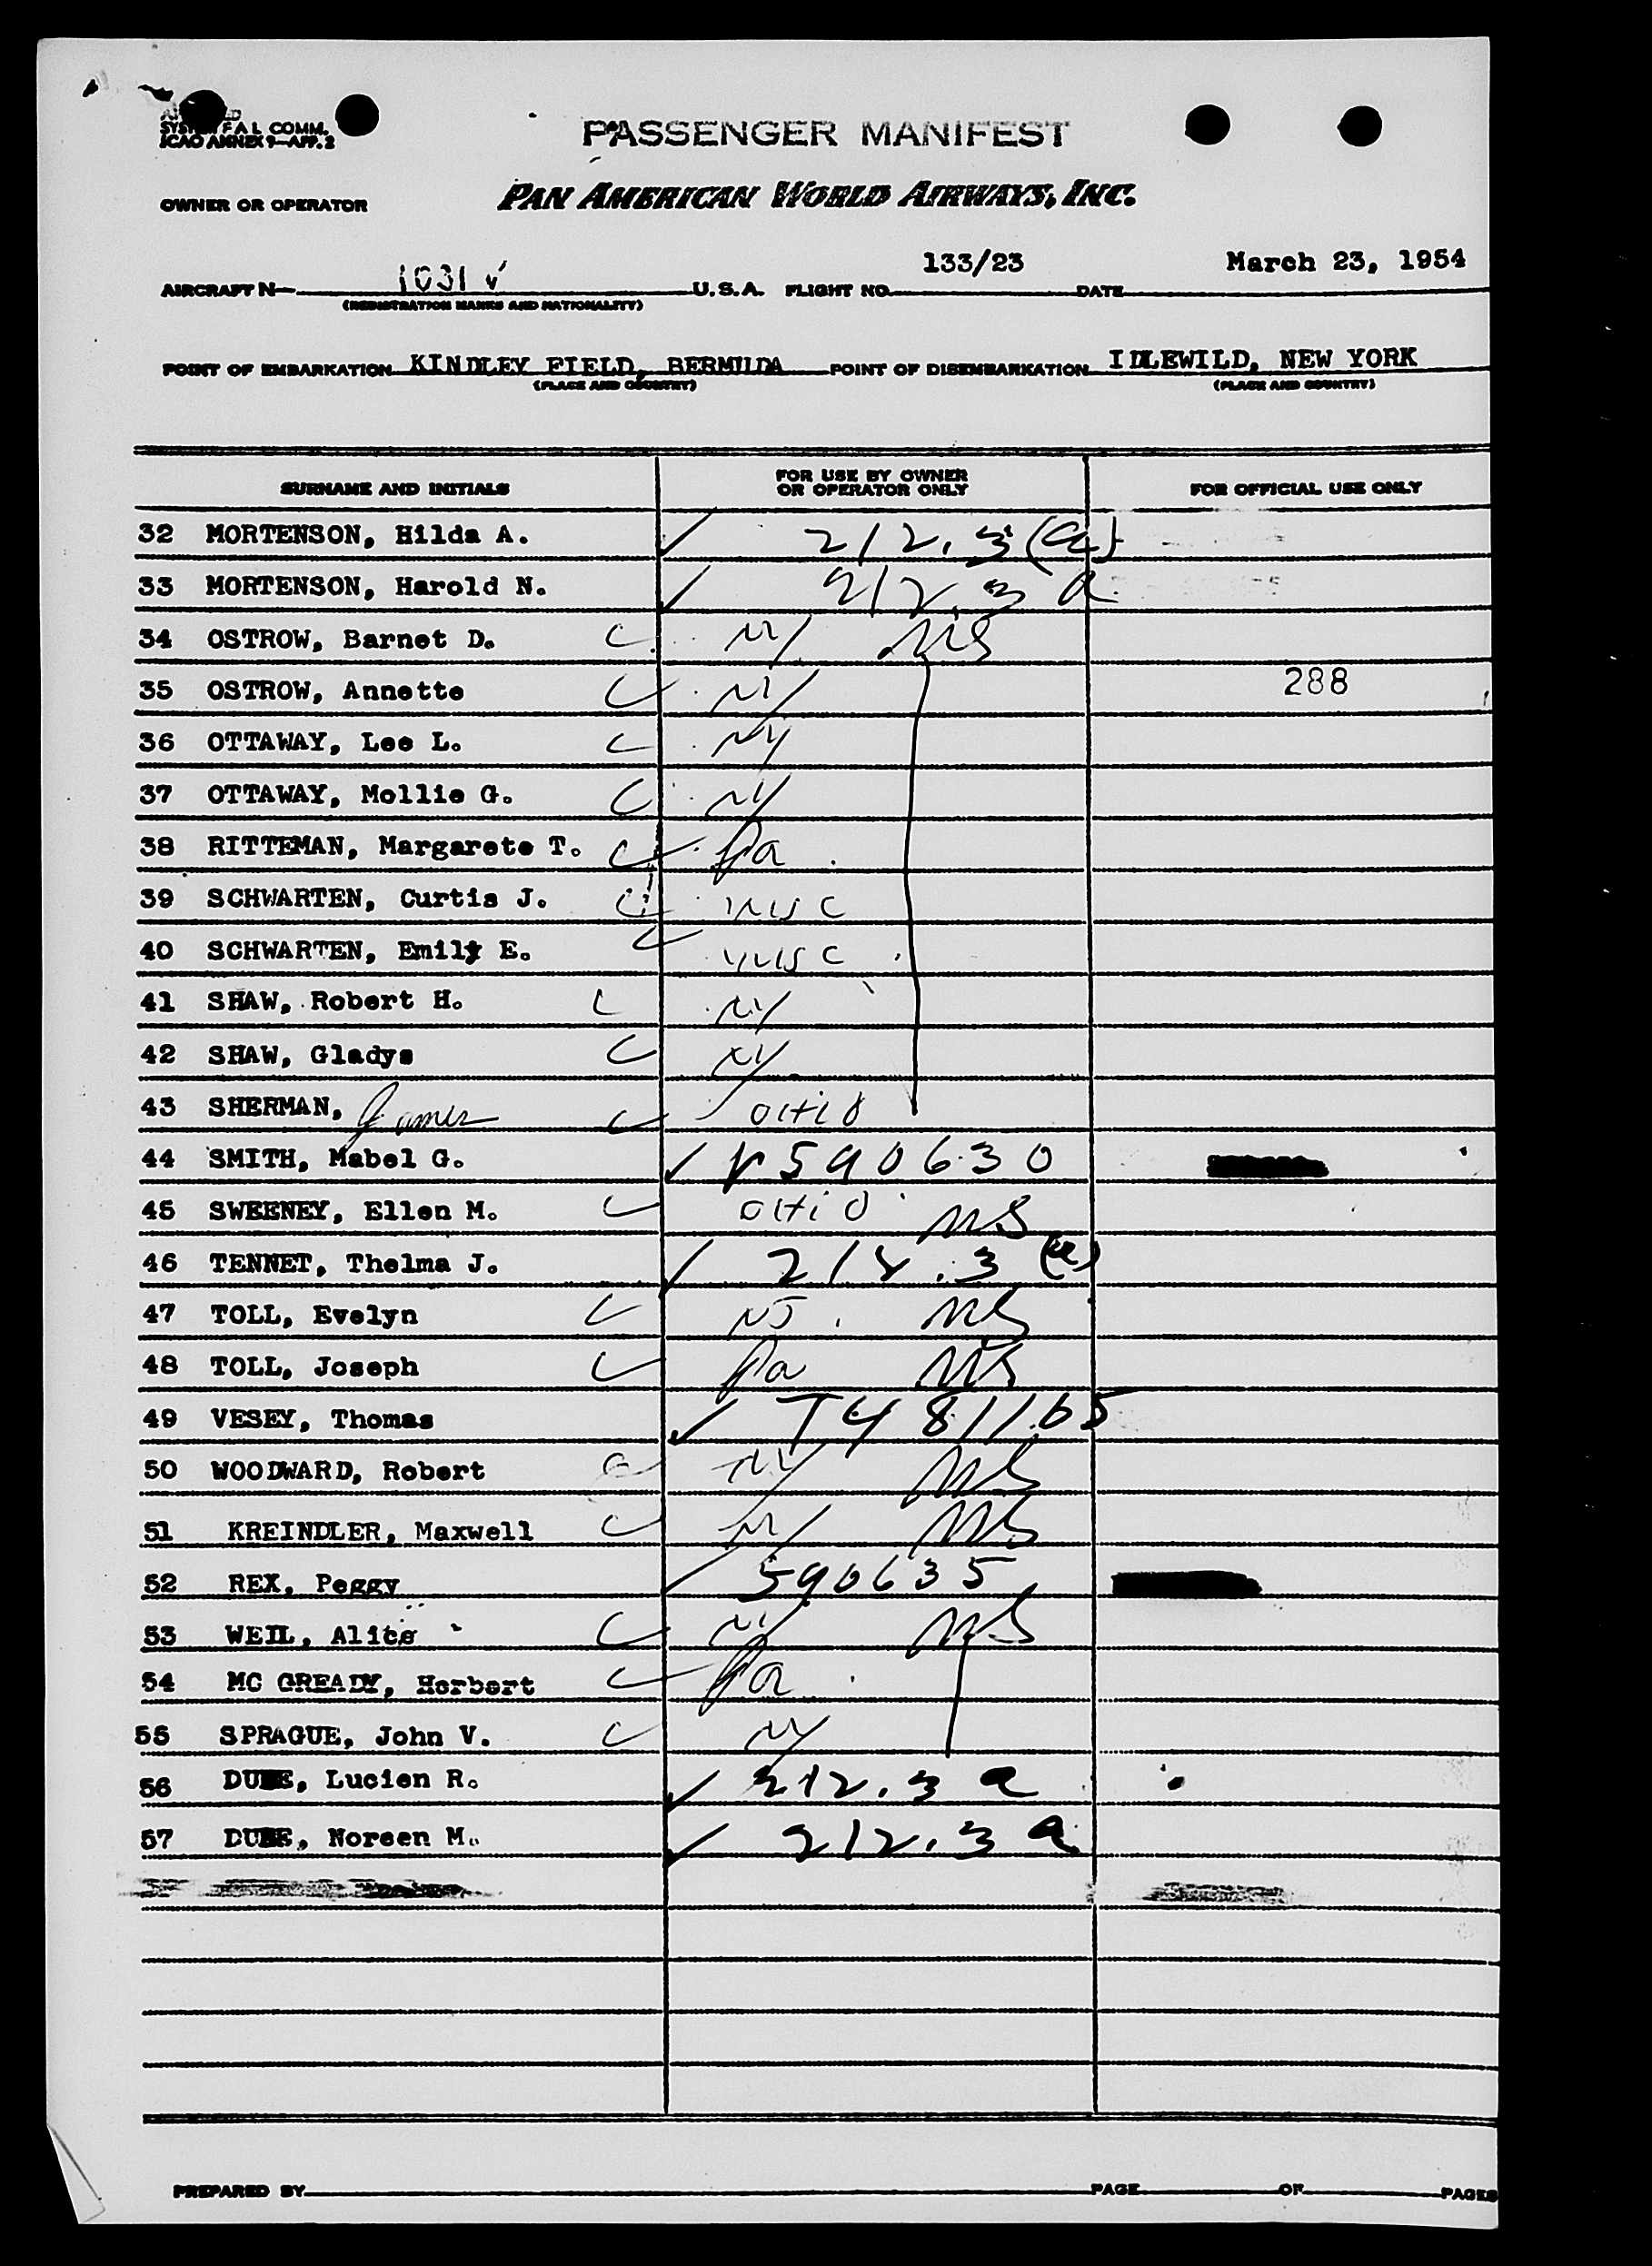 SYSTEM FAL COMM.
ICAO ANNEX 9-APP. 2
PASSENGER MANIFEST
OWNER OR OPERATOR PAN AMERICAN WORLD AIRWAYS, INC.
AIRCRAFT N 1031 ✓ U.S.A. FLIGHT NO. 133/23 DATE March 23, 1954
(REGISTRATION MARKS AND NATIONALITY)
POINT OF EMBARKATION KINDLEY FIELD, BERMUDA POINT OF DISEMBARKATION IDLEWILD, NEW YORK
(PLACE AND COUNTRY) (PLACE AND COUNTRY)
SURNAME AND INITIALS FOR USE BY OWNER OR OPERATOR ONLY FOR OFFICIAL USE ONLY
32 MORTENSON, Hilda A. ✓ 212.3(a)
33 MORTENSON, Harold N. ✓ 212.3 a
34 OSTROW, Barnet D. C NY MS
35 OSTROW, Annette C NY 288
36 OTTAWAY, Lee L. C NY
37 OTTAWAY, Mollie G. C NY
38 RITTEMAN, Margarete T. C Pa
39 SCHWARTEN, Curtis J. C Wisc
40 SCHWARTEN, Emily E. C Wisc
41 SHAW, Robert H. C NY
42 SHAW, Gladys C NY
43 SHERMAN, James C Ohio
44 SMITH, Mabel G. ✓ V590630
45 SWEENEY, Ellen M. C Ohio MS
46 TENNET, Thelma J. ✓ 212.3 (a)
47 TOLL, Evelyn C NJ MS
48 TOLL, Joseph C Pa MS
49 VESEY, Thomas ✓ T481165
50 WOODWARD, Robert C NY MS
51 KREINDLER, Maxwell C NY MS
52 REX, Peggy ✓ 590635
53 WEIL, Alice C NY MS
54 MC GREADY, Herbert C Pa
55 SPRAGUE, John V. C NY
56 DUBE, Lucien R. ✓ 212.3 a
57 DUBE, Noreen M. ✓ 212.3 a
PREPARED BY PAGE OF PAGES